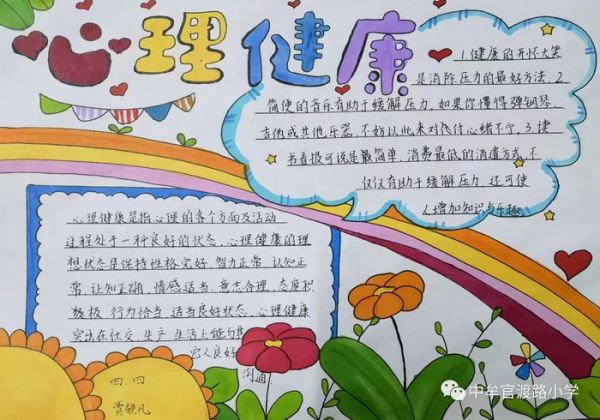 心理健康
1.健康的开怀大笑
是消除压力的最好方法.2
简便的音乐有助于缓解压力.如果你懂得弹钢琴、
吉他或其他乐器,不妨以此来对付心绪不宁.3.读
书看报可说是最简单、消费最低的消遣方式,不
仅仅有助于缓解压力,还可使
人增加知识与乐趣
心理健康是指心理的各个方面及活动
过程处于一种良好的状态.心理健康的理
想状态是保持性格完好、智力正常、认知正
常、认知正确、情感适当、意志合理、态度积
极极、行为恰当、适当良好状态.心理健康
突出在社交、生产、生活上能与其
它人良好
沟通
四.四
贾轶凡
中牟官渡路小学